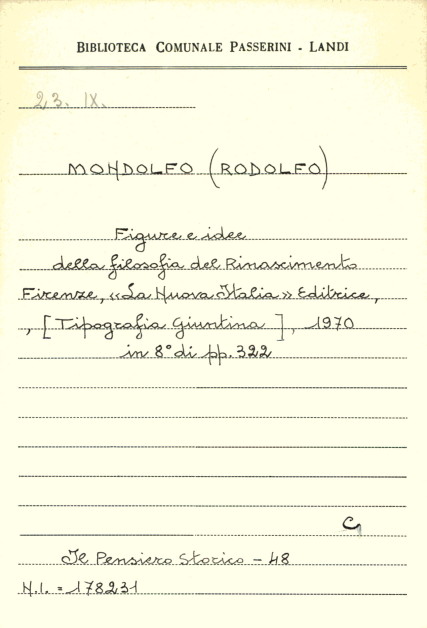 BIBLIOTECA COMUNALE PASSERINI - LANDI
23. IX.
MONDOLFO (RODOLFO)
Figure e idee
della filosofia del Rinascimento
Firenze, «La Nuova Italia» Editrice,
, [Tipografia Giuntina], 1970
in 8° di pp. 322
G
Il Pensiero Storico - 48
N.I. = 178231